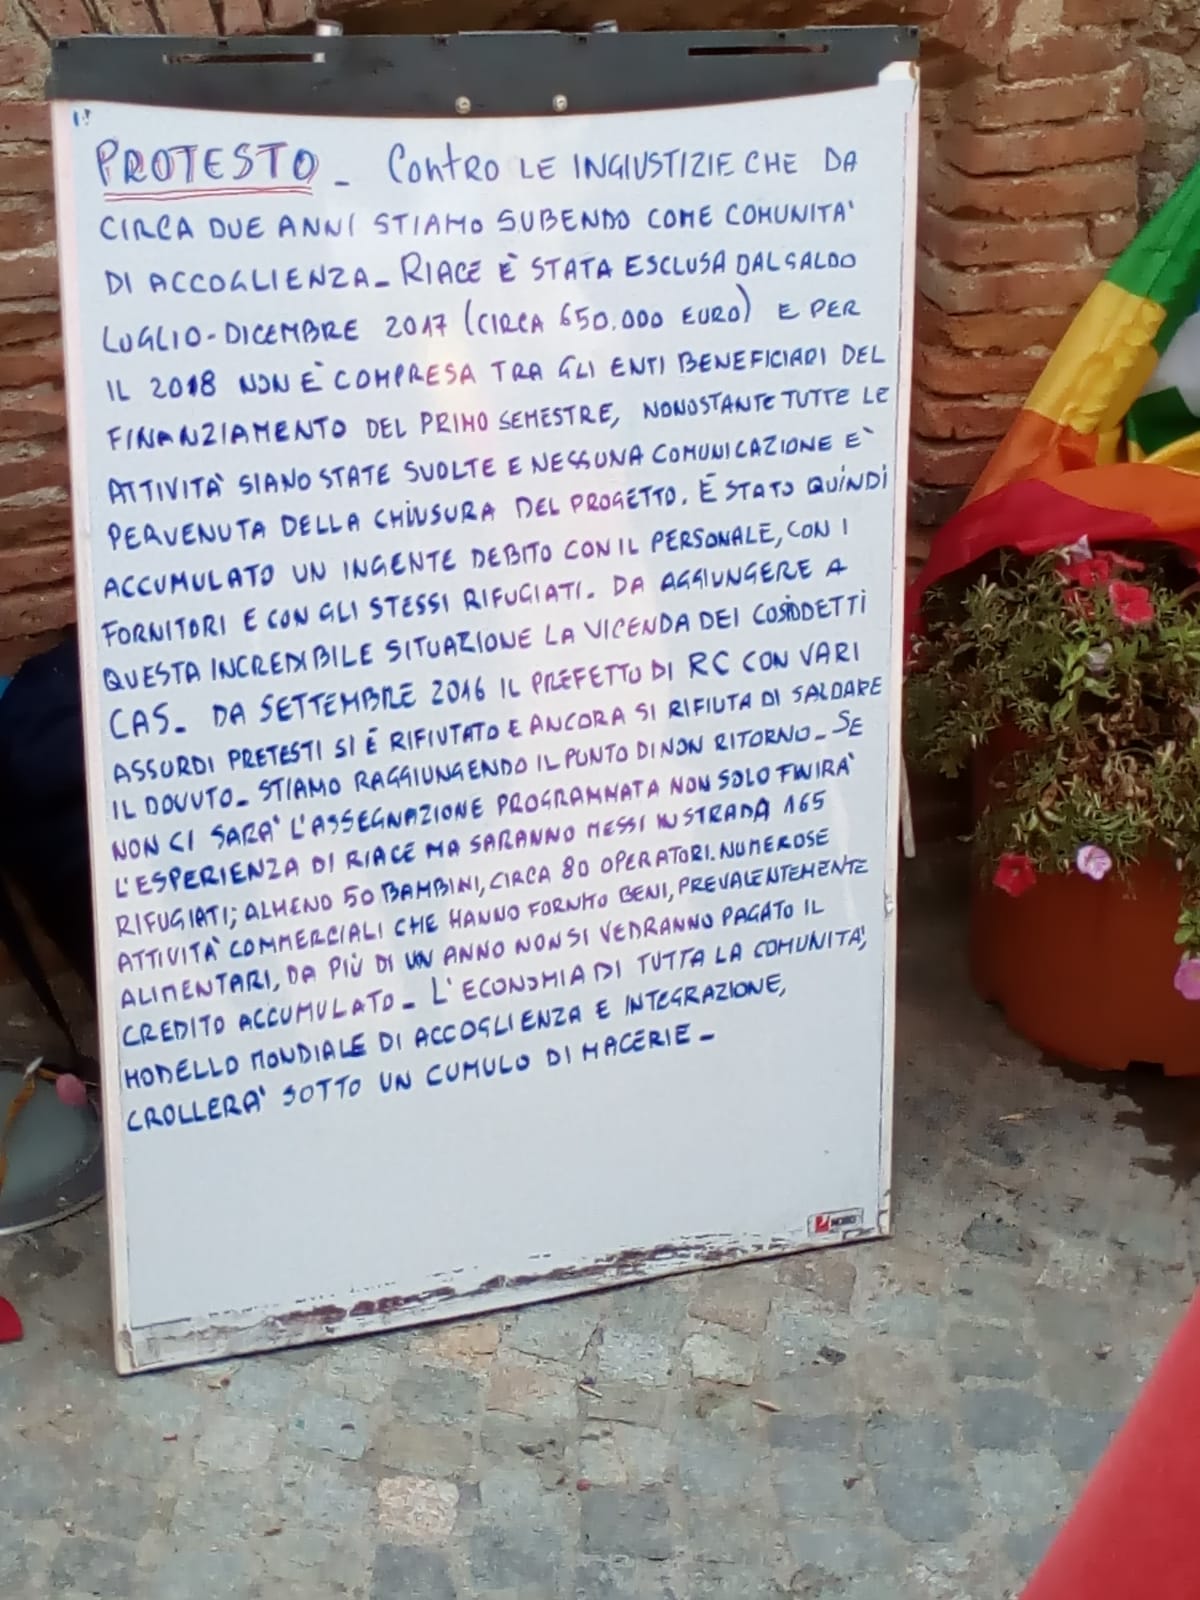 PROTESTO - CONTRO LE INGIUSTIZIE CHE DA
CIRCA DUE ANNI STIAMO SUBENDO COME COMUNITA'
DI ACCOGLIENZA - RIACE È STATA ESCLUSA DAL SALDO
LUGLIO-DICEMBRE 2017 (CIRCA 650.000 EURO) E PER
IL 2018 NON È COMPRESA TRA GLI ENTI BENEFICIARI DEL
FINANZIAMENTO DEL PRIMO SEMESTRE, NONOSTANTE TUTTE LE
ATTIVITA' SIANO STATE SVOLTE E NESSUNA COMUNICAZIONE E'
PERVENUTA DELLA CHIUSURA DEL PROGETTO. È STATO QUINDI
ACCUMULATO UN INGENTE DEBITO CON IL PERSONALE, CON I
FORNITORI E CON GLI STESSI RIFUGIATI - DA AGGIUNGERE A
QUESTA INCREDIBILE SITUAZIONE LA VICENDA DEI COSIDDETTI
CAS - DA SETTEMBRE 2016 IL PREFETTO DI RC CON VARI
ASSURDI PRETESTI SI È RIFIUTATO E ANCORA SI RIFIUTA DI SALDARE
IL DOVUTO - STIAMO RAGGIUNGENDO IL PUNTO DI NON RITORNO - SE
NON CI SARA' L'ASSEGNAZIONE PROGRAMMATA NON SOLO FINIRA'
L'ESPERIENZA DI RIACE MA SARANNO MESSI IN STRADA 165
RIFUGIATI; ALMENO 50 BAMBINI, CIRCA 80 OPERATORI. NUMEROSE
ATTIVITA' COMMERCIALI CHE HANNO FORNITO BENI, PREVALENTEMENTE
ALIMENTARI, DA PIÙ DI UN ANNO NON SI VEDRANNO PAGATO IL
CREDITO ACCUMULATO - L'ECONOMIA DI TUTTA LA COMUNITA',
MODELLO MONDIALE DI ACCOGLIENZA E INTEGRAZIONE,
CROLLERA' SOTTO UN CUMULO DI MACERIE -